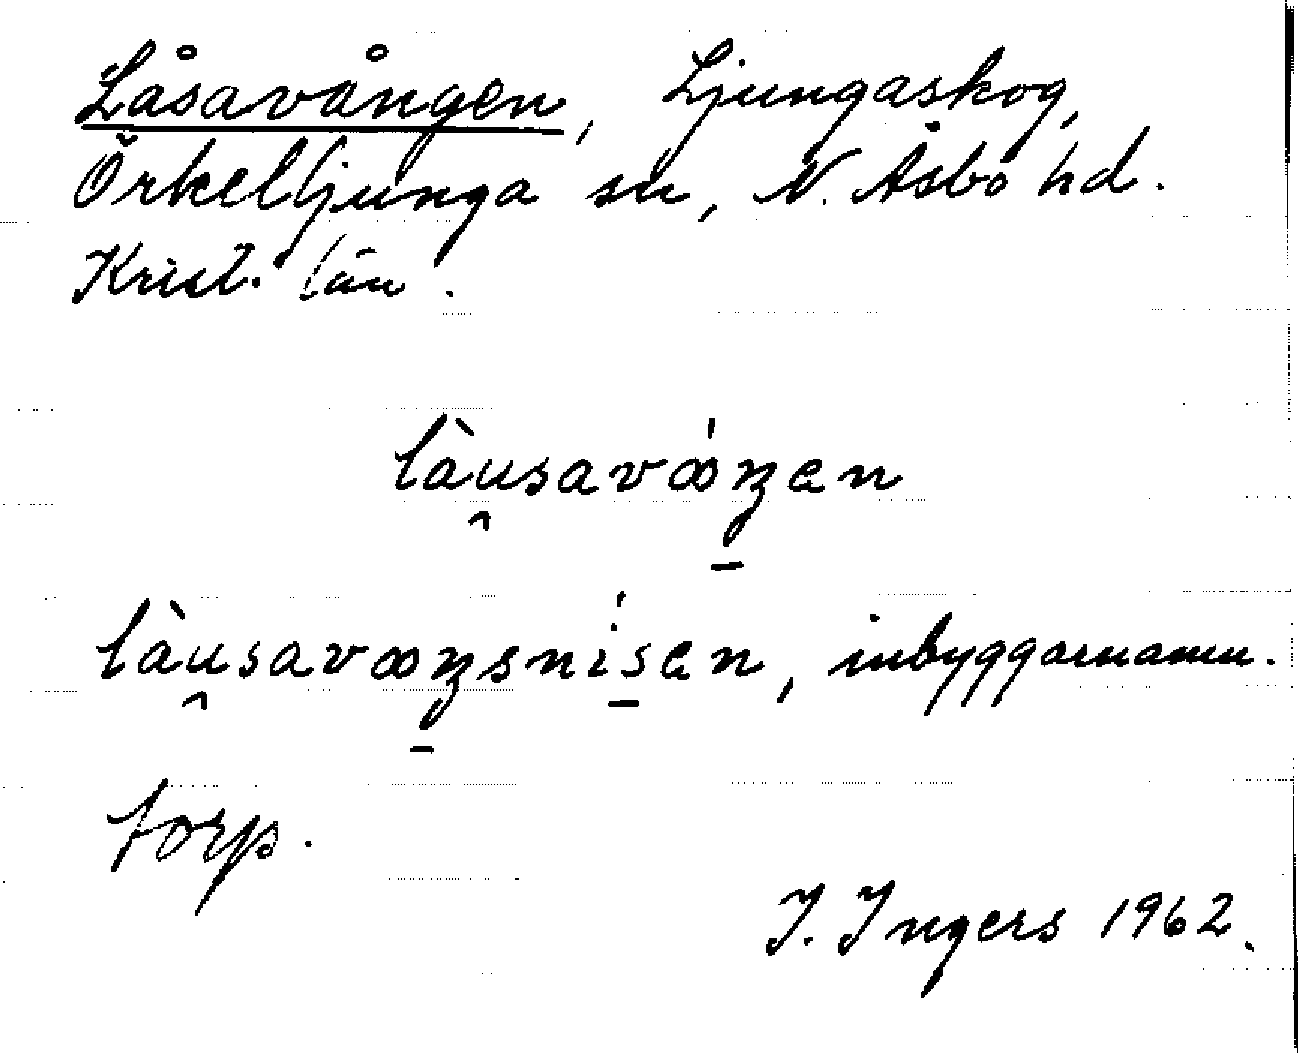 Låsavången, Ljungaskog,
Örkelljunga sn, N. Åsbo hd.
Krist. län.
làu̯savꝏ́ŋ̠en
làu̯savꝏŋ̠snís̠en, inbyggarnamn.
torp.
I. Ingers 1962.